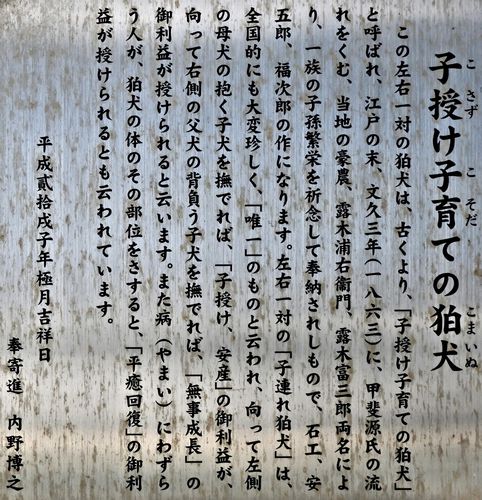 子授け子育ての狛犬
こさず こそだ こまいぬ
この左右一対の狛犬は、古くより、「子授け子育ての狛犬」
と呼ばれ、江戸の末、文久三年(一八六三)に、甲斐源氏の流
れをくむ、当地の豪農、露木浦右衞門、露木富三郎両名によ
り、一族の子孫繁栄を祈念して奉納されしもので、石工 安
五郎、福次郎の作になります。左右一対の「子連れ狛犬」は、
全国的にも大変珍しく、「唯一」のものと云われ、向って左側
の母犬の抱く子犬を撫でれば、「子授け、安産」の御利益が、
向って右側の父犬の背負う子犬を撫でれば、「無事成長」の
御利益が授けられると云います。また病(やまい)にわずら
う人が、狛犬の体のその部位をさすると、「平癒回復」の御利
益が授けられるとも云われています。
平成貳拾戊子年極月吉祥日
奉寄進 内野博之